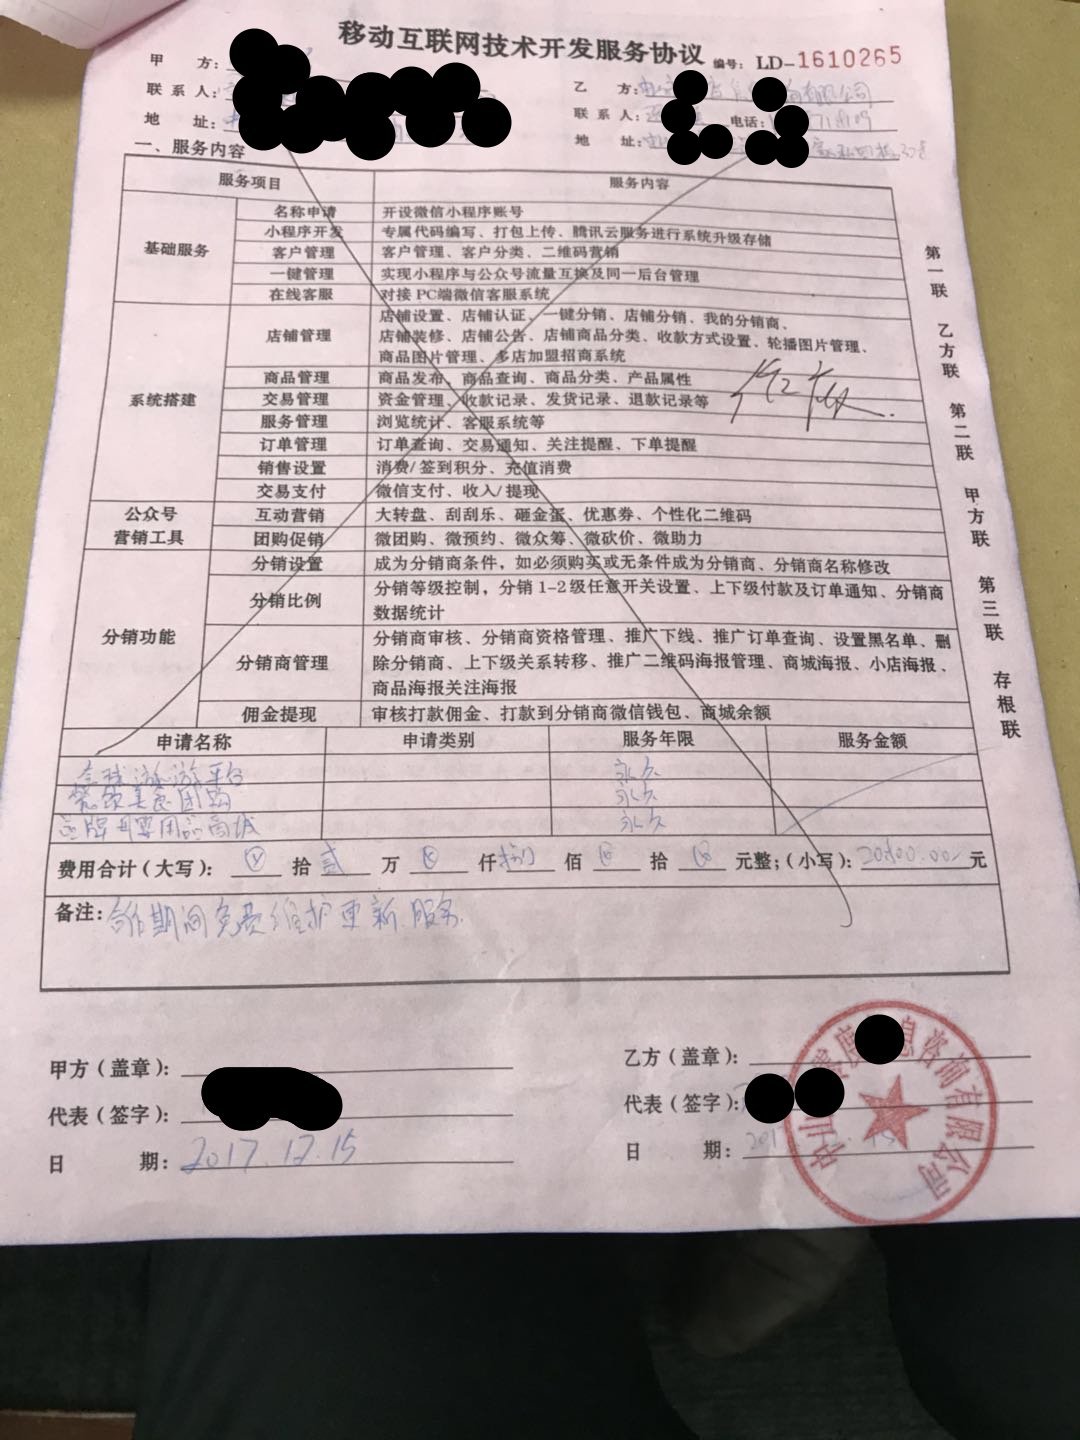 移动互联网技术开发服务协议 编号: LD-1610265
甲 方:
乙 方: 有限公司
联 系 人:
联 系 人: 电话:
地 址:
地 址:
一、服务内容
服务项目 服务内容
基础服务
名称申请 开设微信小程序账号
小程序开发 专属代码编写、打包上传、腾讯云服务进行系统升级存储
客户管理 客户管理、客户分类、二维码营销
一键管理 实现小程序与公众号流量互换及同一后台管理
在线客服 对接 PC端微信客服系统
系统搭建
店铺管理
店铺设置、店铺认证、一键分销、店铺分销、我的分销商、
店铺装修、店铺公告、店铺商品分类、收款方式设置、轮播图片管理、
商品图片管理、多店加盟招商系统
商品管理 商品发布、商品查询、商品分类、产品属性
交易管理 资金管理、收款记录、发货记录、退款记录等
服务管理 浏览统计、客服系统等
订单管理 订单查询、交易通知、关注提醒、下单提醒
销售设置 消费/签到积分、充值消费
交易支付 微信支付、收入/提现
公众号
营销工具
互动营销 大转盘、刮刮乐、砸金蛋、优惠券、个性化二维码
团购促销 微团购、微预约、微众筹、微砍价、微助力
分销功能
分销设置 成为分销商条件，如必须购买或无条件成为分销商、分销商名称修改
分销比例
分销等级控制，分销 1-2 级任意开关设置、上下级付款及订单通知、分销商
数据统计
分销商管理
分销商审核、分销商资格管理、推广下线、推广订单查询、设置黑名单、删
除分销商、上下级关系转移、推广二维码海报管理、商城海报、小店海报、
商品海报关注海报
佣金提现 审核打款佣金、打款到分销商微信钱包、商城余额
申请名称 申请类别 服务年限 服务金额
全球旅游平台 永久
美食团购 永久
品牌母婴用品商城 永久
费用合计（大写）: 拾 贰 万 仟 捌 佰 拾 元整；(小写): 元
备注: 合作期间免费维护更新服务.
甲方（盖章）:
代表（签字）:
日 期: 2017.12.15
乙方（盖章）:
代表（签字）:
日 期:
中山 度 息咨询有限公司
第一联 乙方联 第二联 甲方联 第三联 存根联